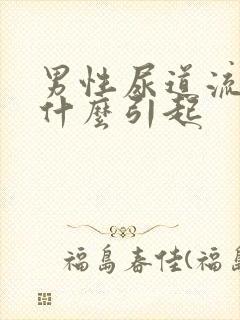 男性尿道流
什麼引起
福島春佳(福島